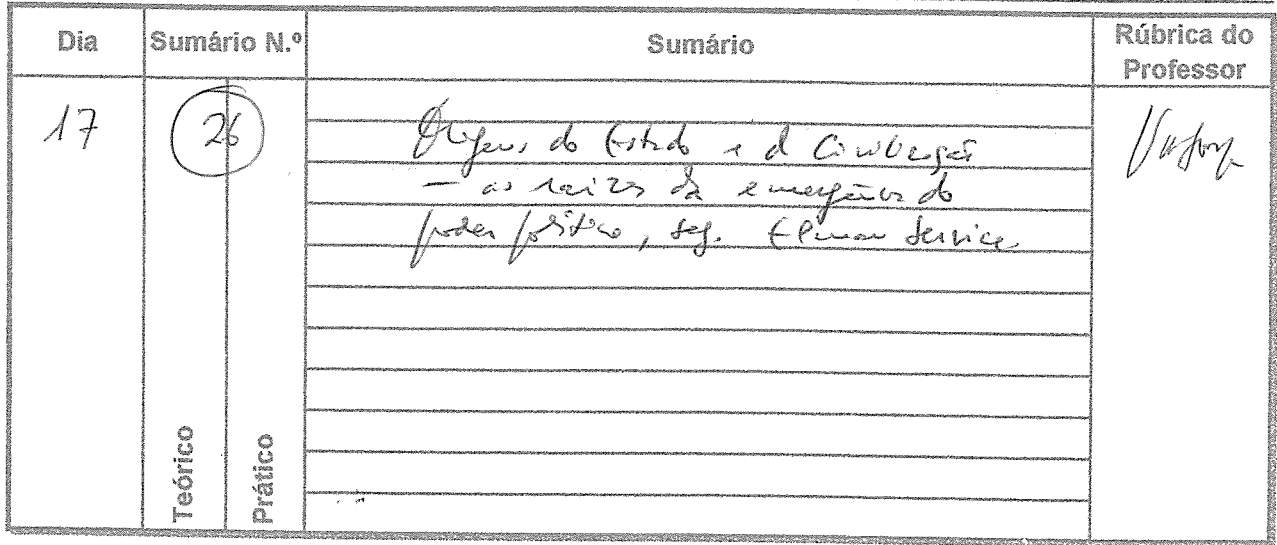 Dia Sumário N.º Sumário Rúbrica do Professor
17 26 Origens do Estado e da Civilização
— as raízes da emergência do
poder político, seg. Elman Service
Teórico Prático